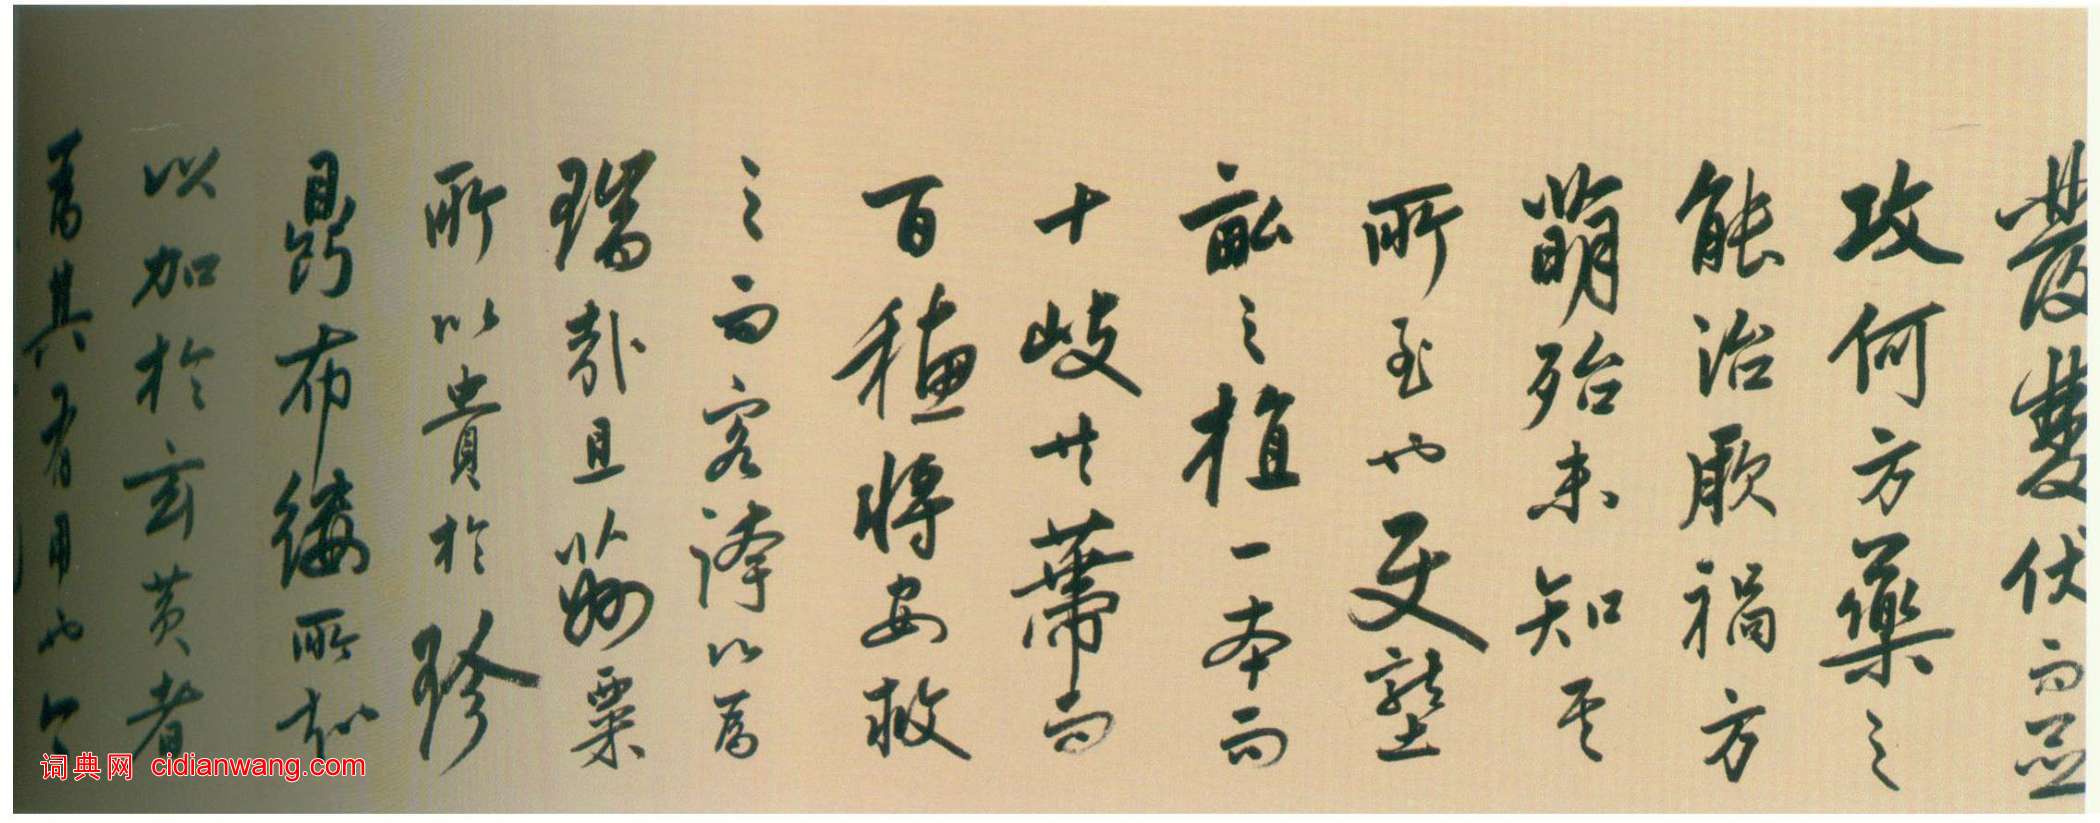 叢雙伏而並
攻何方藥之
能治厥禍方
萌殆未知其
所至也更壟
畝之植一本而
十歧共蒂而
百穗將安救
之而客謗以為
瑞哉且芻粟
所以貴於珍
鼎布縷所
以加於玄黃者
為其有用也今
词典网 cidianwang.com